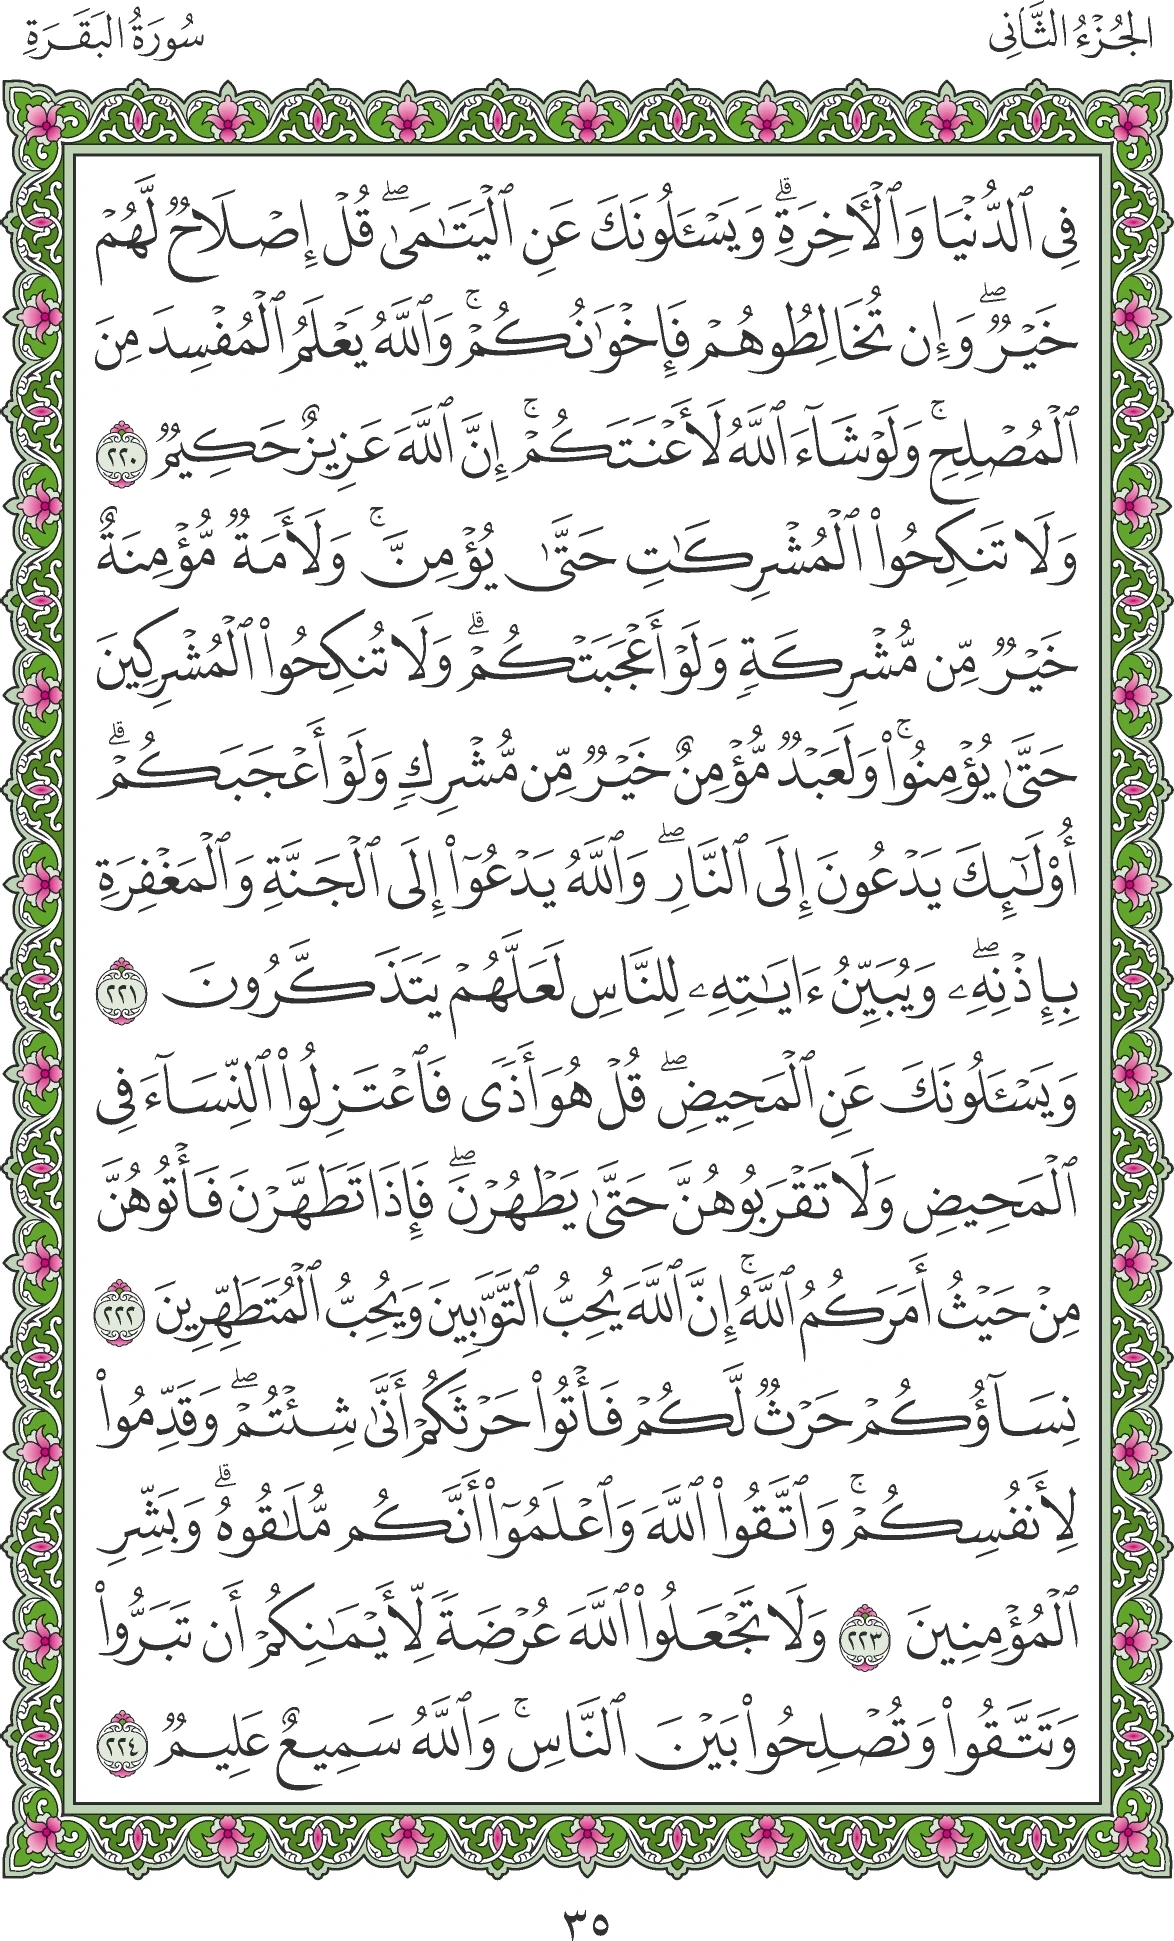 الجُزْءُ الثَّانِي سُورَةُ البَقَرَةِ
فِي ٱلدُّنۡيَا وَٱلۡأٓخِرَةِۗ وَيَسۡـَٔلُونَكَ عَنِ ٱلۡيَتَٰمَىٰۖ قُلۡ إِصۡلَاحٞ لَّهُمۡ
خَيۡرٞۖ وَإِن تُخَالِطُوهُمۡ فَإِخۡوَٰنُكُمۡۚ وَٱللَّهُ يَعۡلَمُ ٱلۡمُفۡسِدَ مِنَ
ٱلۡمُصۡلِحِۚ وَلَوۡ شَآءَ ٱللَّهُ لَأَعۡنَتَكُمۡۚ إِنَّ ٱللَّهَ عَزِيزٌ حَكِيمٞ ٢٢٠
وَلَا تَنكِحُواْ ٱلۡمُشۡرِكَٰتِ حَتَّىٰ يُؤۡمِنَّۚ وَلَأَمَةٞ مُّؤۡمِنَةٌ
خَيۡرٞ مِّن مُّشۡرِكَةٖ وَلَوۡ أَعۡجَبَتۡكُمۡۗ وَلَا تُنكِحُواْ ٱلۡمُشۡرِكِينَ
حَتَّىٰ يُؤۡمِنُواْۚ وَلَعَبۡدٞ مُّؤۡمِنٌ خَيۡرٞ مِّن مُّشۡرِكٖ وَلَوۡ أَعۡجَبَكُمۡۗ
أُوْلَٰٓئِكَ يَدۡعُونَ إِلَى ٱلنَّارِۖ وَٱللَّهُ يَدۡعُوٓاْ إِلَى ٱلۡجَنَّةِ وَٱلۡمَغۡفِرَةِ
بِإِذۡنِهِۦۖ وَيُبَيِّنُ ءَايَٰتِهِۦ لِلنَّاسِ لَعَلَّهُمۡ يَتَذَكَّرُونَ ٢٢١
وَيَسۡـَٔلُونَكَ عَنِ ٱلۡمَحِيضِۖ قُلۡ هُوَ أَذٗى فَٱعۡتَزِلُواْ ٱلنِّسَآءَ فِي
ٱلۡمَحِيضِ وَلَا تَقۡرَبُوهُنَّ حَتَّىٰ يَطۡهُرۡنَۖ فَإِذَا تَطَهَّرۡنَ فَأۡتُوهُنَّ
مِنۡ حَيۡثُ أَمَرَكُمُ ٱللَّهُۚ إِنَّ ٱللَّهَ يُحِبُّ ٱلتَّوَّٰبِينَ وَيُحِبُّ ٱلۡمُتَطَهِّرِينَ ٢٢٢
نِسَآؤُكُمۡ حَرۡثٞ لَّكُمۡ فَأۡتُواْ حَرۡثَكُمۡ أَنَّىٰ شِئۡتُمۡۖ وَقَدِّمُواْ
لِأَنفُسِكُمۡۚ وَٱتَّقُواْ ٱللَّهَ وَٱعۡلَمُوٓاْ أَنَّكُم مُّلَٰقُوهُۗ وَبَشِّرِ
ٱلۡمُؤۡمِنِينَ ٢٢٣ وَلَا تَجۡعَلُواْ ٱللَّهَ عُرۡضَةٗ لِّأَيۡمَٰنِكُمۡ أَن تَبَرُّواْ
وَتَتَّقُواْ وَتُصۡلِحُواْ بَيۡنَ ٱلنَّاسِۚ وَٱللَّهُ سَمِيعٌ عَلِيمٞ ٢٢٤
٣٥